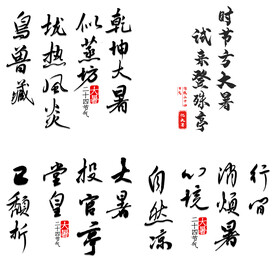 乾坤大暑
似蒸坊
热风炎
鸟兽藏
大暑
二十四节气
时节方大暑
试来登殊亭
大暑
投官亭
堂皇
已颓折
大暑
二十四节气
行间
消烦暑
心境
自然凉
大暑
二十四节气